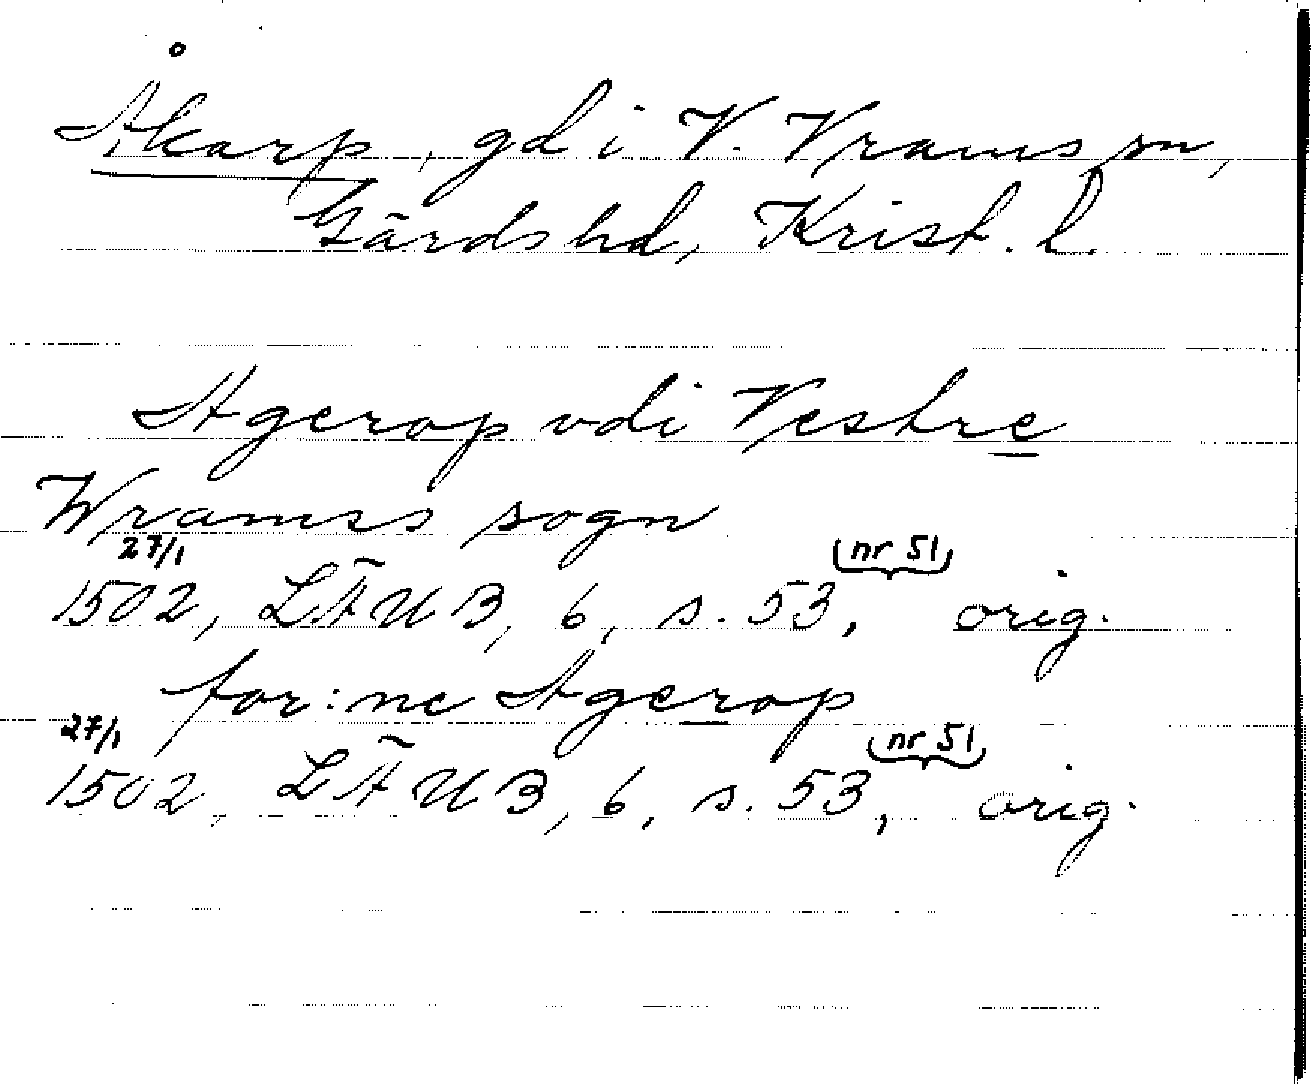 Åkarp, gd i V. Vrams sn,
Gärds hd, Krist. l.
Agerop vdi Vestre
Wramss sogn
27/1 (nr 51)
1502, LÄUB, 6, s. 53, orig.
for:ne Agerop
27/1 (nr 51)
1502, LÄUB, 6, s. 53, orig.